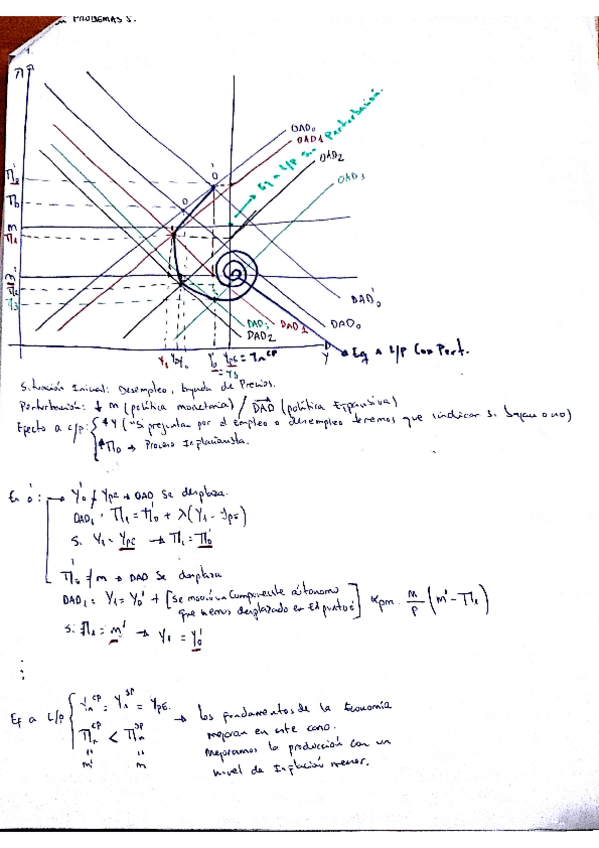 PROBLEMAS 5.
1.
π
OAD₀
OAD₁
OAD₂
OAD₃
Eq a L/p sin Perturbación.
π₀'
π₀
m
π₁
π₃
DAD₀'
DAD₀
DAD₁
DAD₃
DAD₂
Y₁ Y₂ Y₀ Y₀' Ype = Yn^CP
Y₃
Y
Eq a L/p Con Pert.
Situación Inicial: Desempleo, bajada de Precios.
Perturbación: ↓ m (política monetaria) / DAD (política Expansiva)
Efecto a c/p: ↑Y ("Si preguntan por el empleo o desempleo tenemos que indicar si bajan o no)
↑π₀ → Proceso Inflacionista.
En 0': → Y₀' ≠ Ype → OAD se desplaza.
OAD₁: π₁ = π₀' + λ(Y₁ - Ype)
Si Y₁ = Ype → π₁ = π₀'
π₀' ≠ m → DAD se desplaza
DAD₁ = Y₁ = Y₀' + [se movió un componente autónomo
que hemos desplazado en el punto] Kpm. m/p (m' - π₁)
si π₁ = m' → Y₁ = Y₀'
⋮
Ef a L/p Yn^CP = Yn^SP = Ype.
πn^CP < πn^SP → Los fundamentos de la Economía
mejoran en este caso.
" " Mejoramos la producción con un
m' m nivel de Inflación menor.